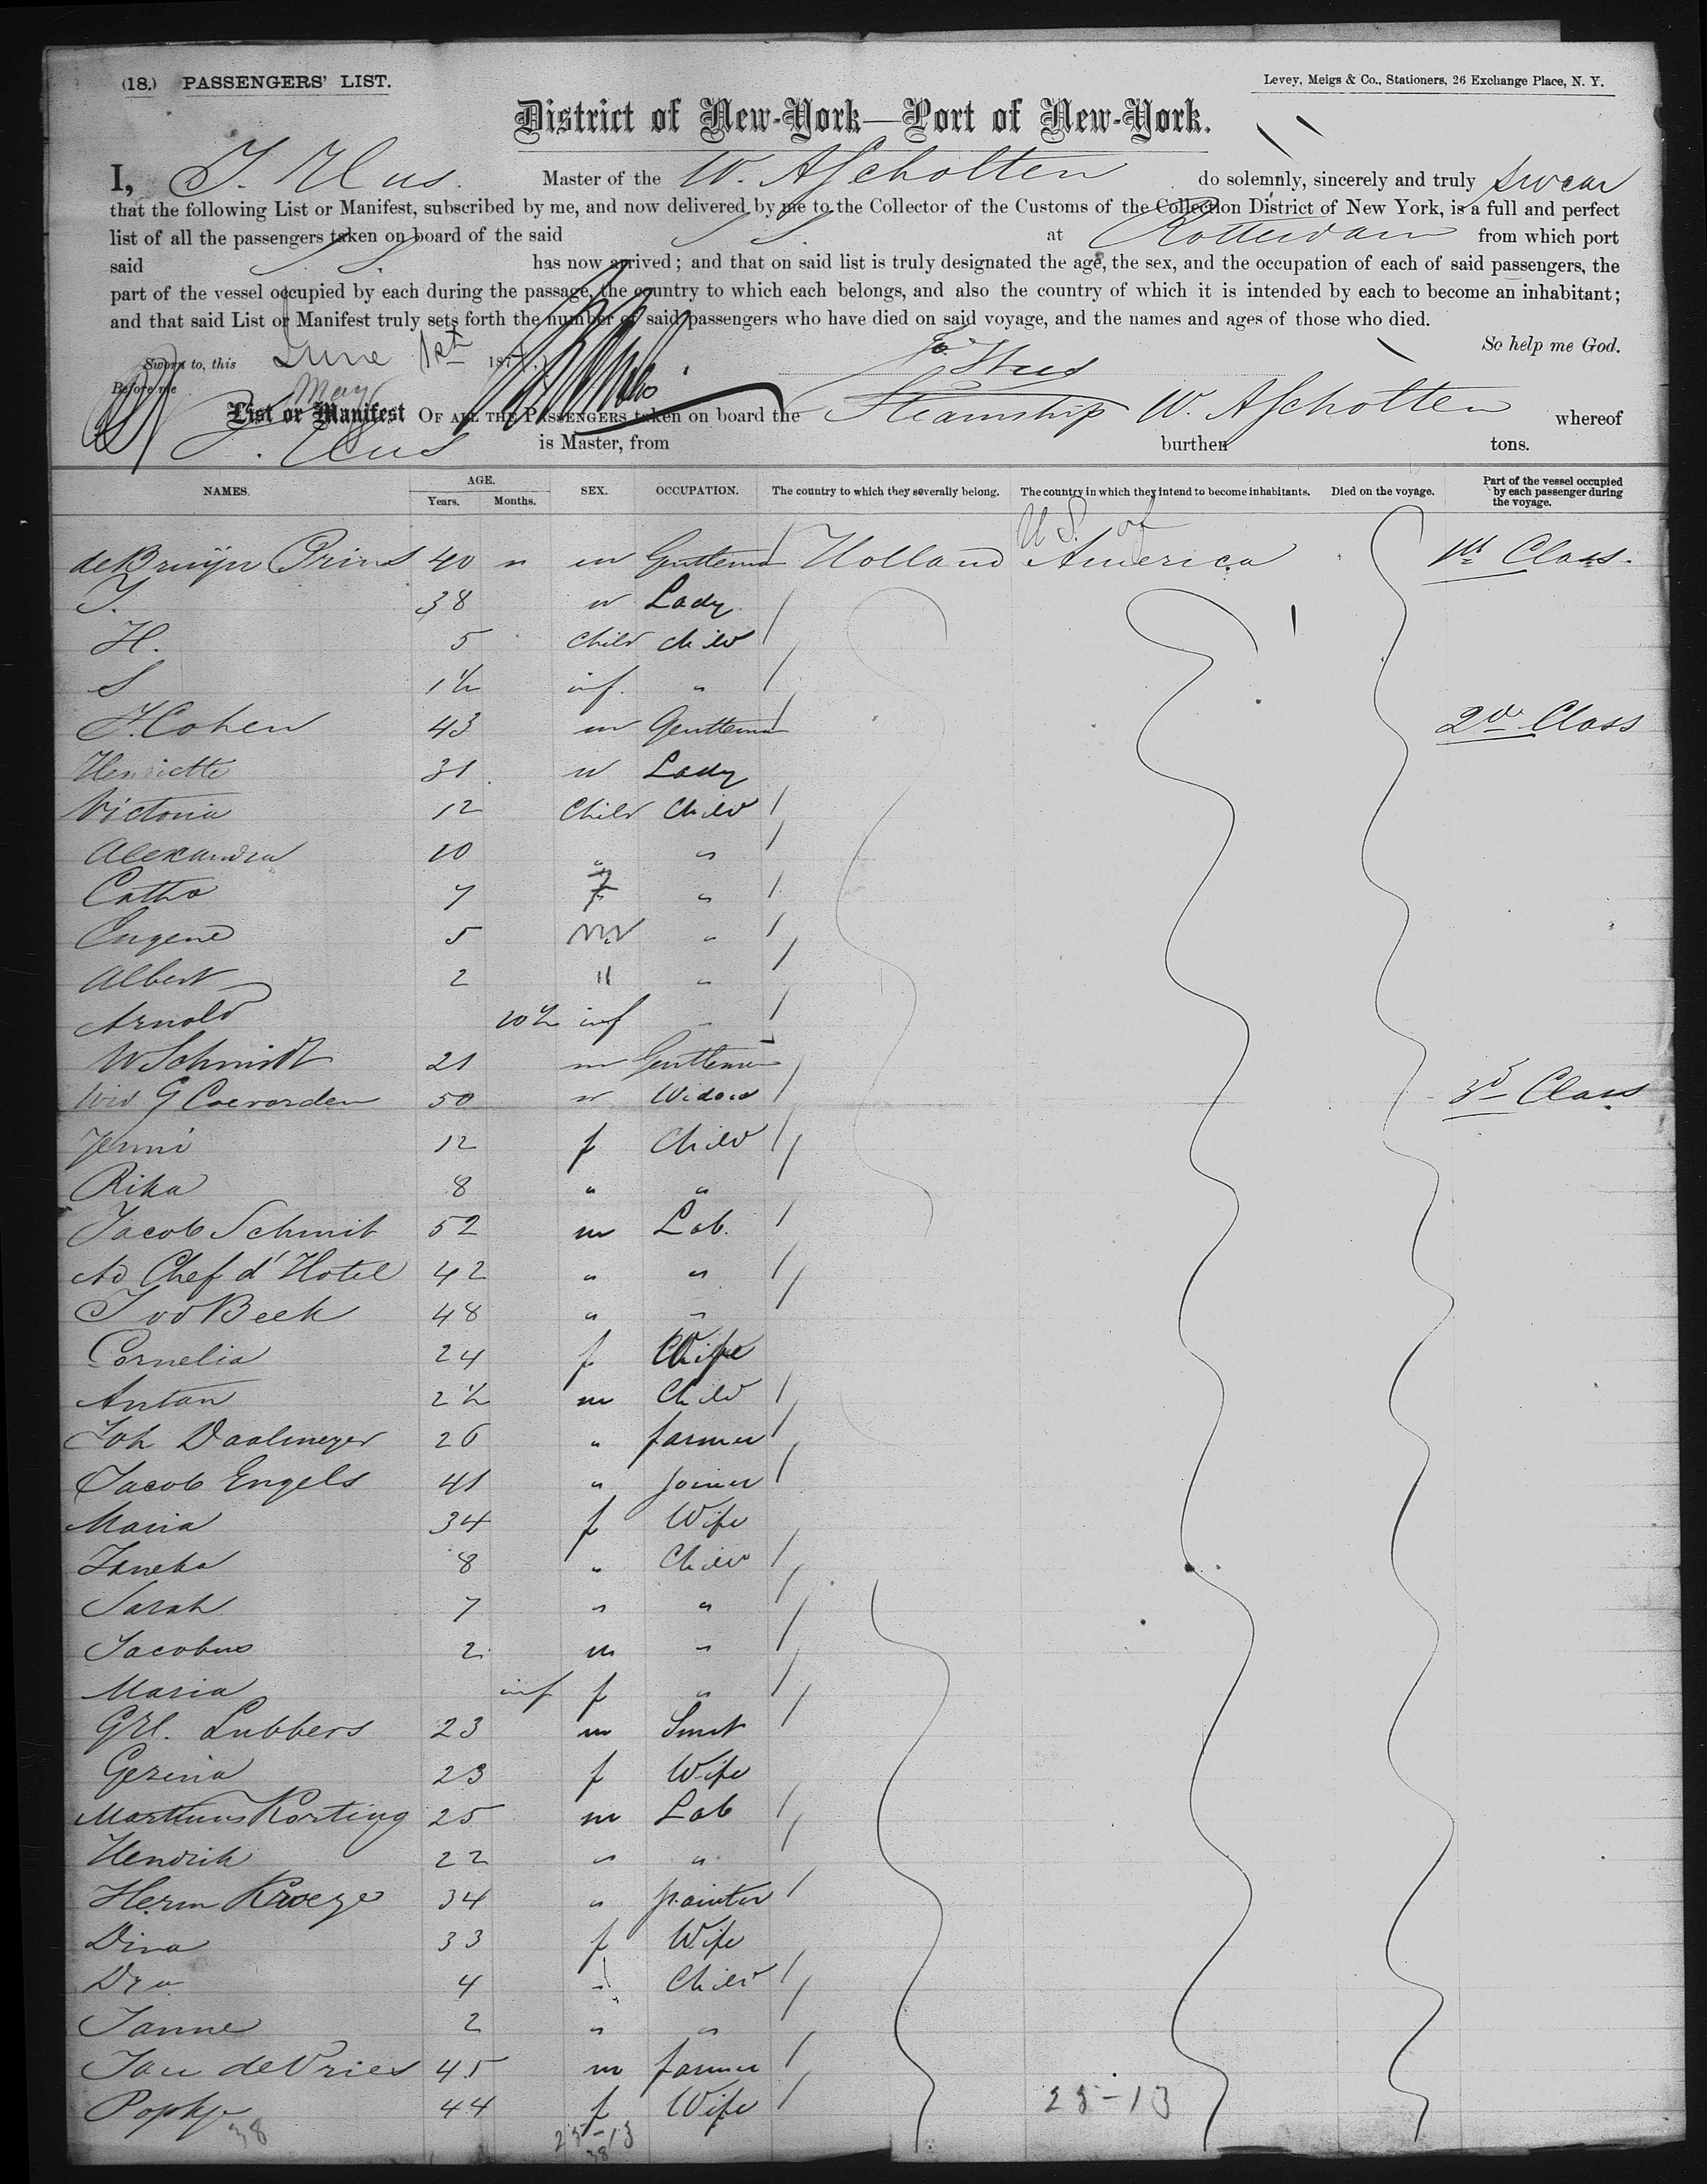 (18.) PASSENGERS' LIST.
Levey, Meigs & Co., Stationers, 26 Exchange Place, N. Y.
District of New-York—Port of New-York.
I, J. Hus. Master of the W. A Scholten do solemnly, sincerely and truly swear
that the following List or Manifest, subscribed by me, and now delivered by me to the Collector of the Customs of the Collection District of New York, is a full and perfect
list of all the passengers taken on board of the said at Rotterdam from which port
said has now arrived; and that on said list is truly designated the age, the sex, and the occupation of each of said passengers, the
part of the vessel occupied by each during the passage, the country to which each belongs, and also the country of which it is intended by each to become an inhabitant;
and that said List or Manifest truly sets forth the number of said passengers who have died on said voyage, and the names and ages of those who died.
So help me God.
Sworn to, this June 1st 187
Before me
May
Hus
List or Manifest OF ALL THE PASSENGERS taken on board the Steamship W. A Scholten whereof
J. Hus is Master, from burthen tons.
NAMES. AGE. Years. Months. SEX. OCCUPATION. The country to which they severally belong. The country in which they intend to become inhabitants. Died on the voyage. Part of the vessel occupied by each passenger during the voyage.
de Bruijn Prins 40 " m Gentleman Holland U S. of America 1st Class.
J. 38 w Lady
H. 5 Child child
S 1½ inf. "
J. Cohen 43 m Gentleman 2d Class
Henriette 31 w Lady
Victoria 12 Child Child
Alexandra 10 " "
Catho 7 f "
Eugene 5 m "
Albert 2 " "
Arnold 10½ inf
W Schmidt 21 m Gentleman
Wid G Coevorden 50 w Widow 3d Class
Jenni 12 f Child
Rika 8 " "
Jacob Schmit 52 m Lab.
Ad Chef d'Hotel 42 " "
J vd Beek 48 " "
Cornelia 24 f Wife
Anton 2½ m Child
Joh Daalmeyer 26 " farmer
Jacob Engels 41 " Joiner
Maria 34 f Wife
Janeka 8 " Child
Sarah 7 " "
Jacobus 2 m "
Maria inf f "
GH. Lubbers 23 m Smit
Gezina 23 f Wife
Marthinus Korting 25 m Lab
Hendrik 22 " "
Herm Kroeze 34 " painter
Dina 33 f Wife
Dra 4 " Child
Janne 2 " "
Jan de Vries 45 m farmer
Popkje 44 f Wife
25-13
38 25-13
38